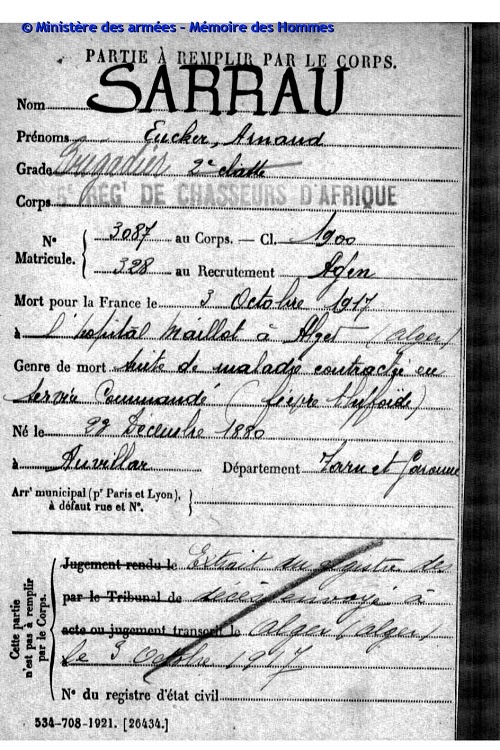 © Ministère des armées - Mémoire des Hommes
PARTIE À REMPLIR PAR LE CORPS.
Nom SARRAU
Prénoms Eucher, Arnaud
Grade Brigadier 2e classe
Corps 5e RÉGT DE CHASSEURS D'AFRIQUE
N° Matricule. { 3087 au Corps. — Cl. 1900
328 au Recrutement Agen
Mort pour la France le 3 Octobre 1917
à l'hopital Maillot à Alger (Alger)
Genre de mort suite de maladie contractée en
service Commandé (fièvre thyffoïde)
Né le 22 Decembre 1880
à Auvillar Département Tarn et Garonne
Arrt municipal (pr Paris et Lyon),
à défaut rue et N°.
Cette partie n'est pas à remplir par le Corps.
Jugement rendu le Extrait du registre de
par le Tribunal de décès envoyé à
acte ou jugement transcrit le Alger (Alger)
le 3 Octobre 1917
N° du registre d'état civil
534-708-1921. [26434.]